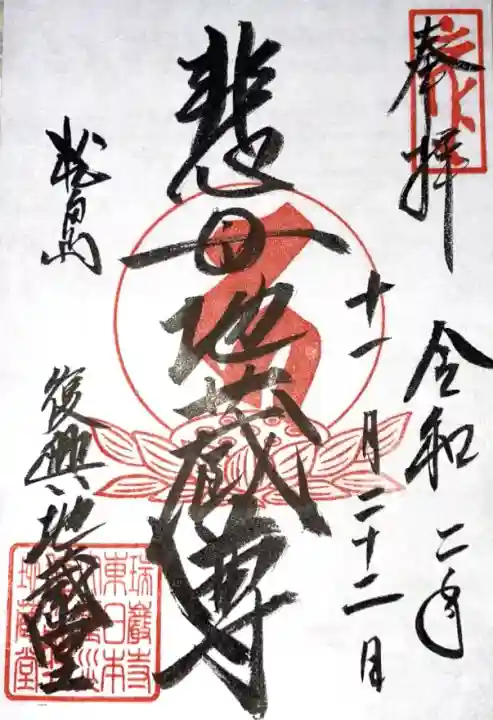 奉拝
令和二年
十一月二十二日
悲母地蔵尊
松島
復興地蔵堂
瑞巖寺
東日本
地蔵堂